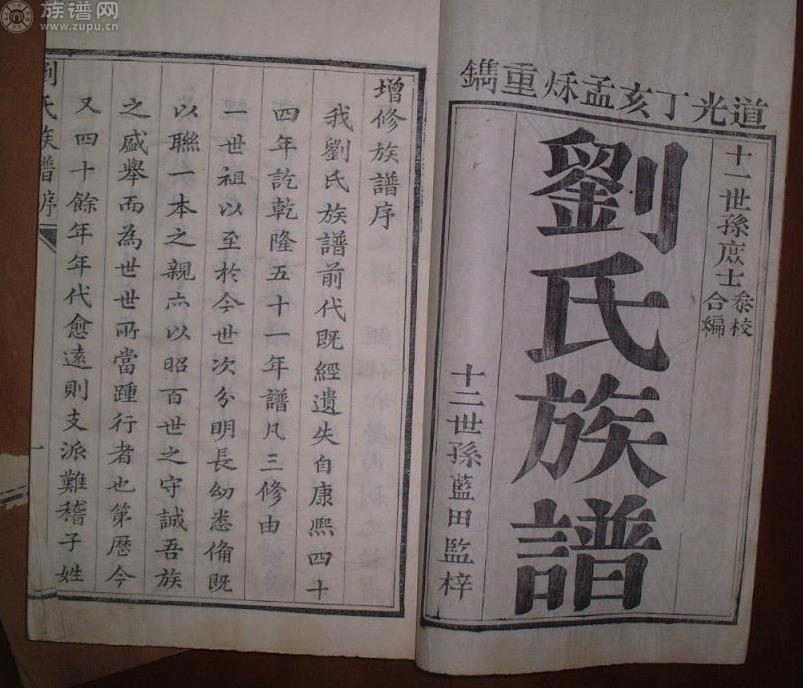 族谱网
www.zupu.cn
道光丁亥孟秌重鐫
十一世孫庶士叅校合編
劉氏族譜
十二世孫藍田監梓
增修族譜序
我劉氏族譜前代既經遺失自康熙四十
四年訖乾隆五十一年譜凡三修由
一世祖以至於今世次分明長幼悉備既
以聯一本之親亦以昭百世之守誠吾族
之盛舉而為世世所當踵行者也第歷今
又四十餘年年代愈遠則支派難稽子姓
劉氏族譜序
一